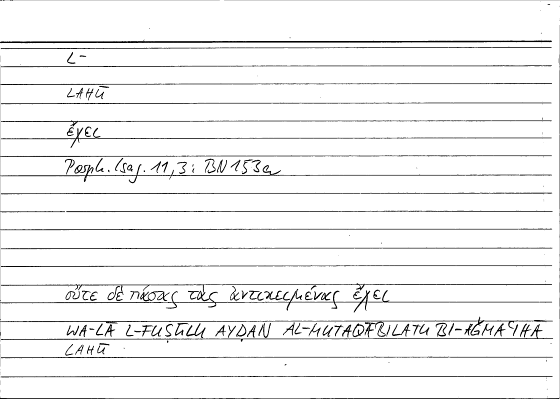 L-
LAHŪ
ἔχει
Porph. Isag. 11,3; BN 153a
οὔτε δὲ πάσας τὰς ἀντικειμένας ἔχει
WA-LĀ L-FUṢŪLU AYḌAN AL-MUTAQĀBILATU BI-AǦMAʿIHĀ
LAHŪ